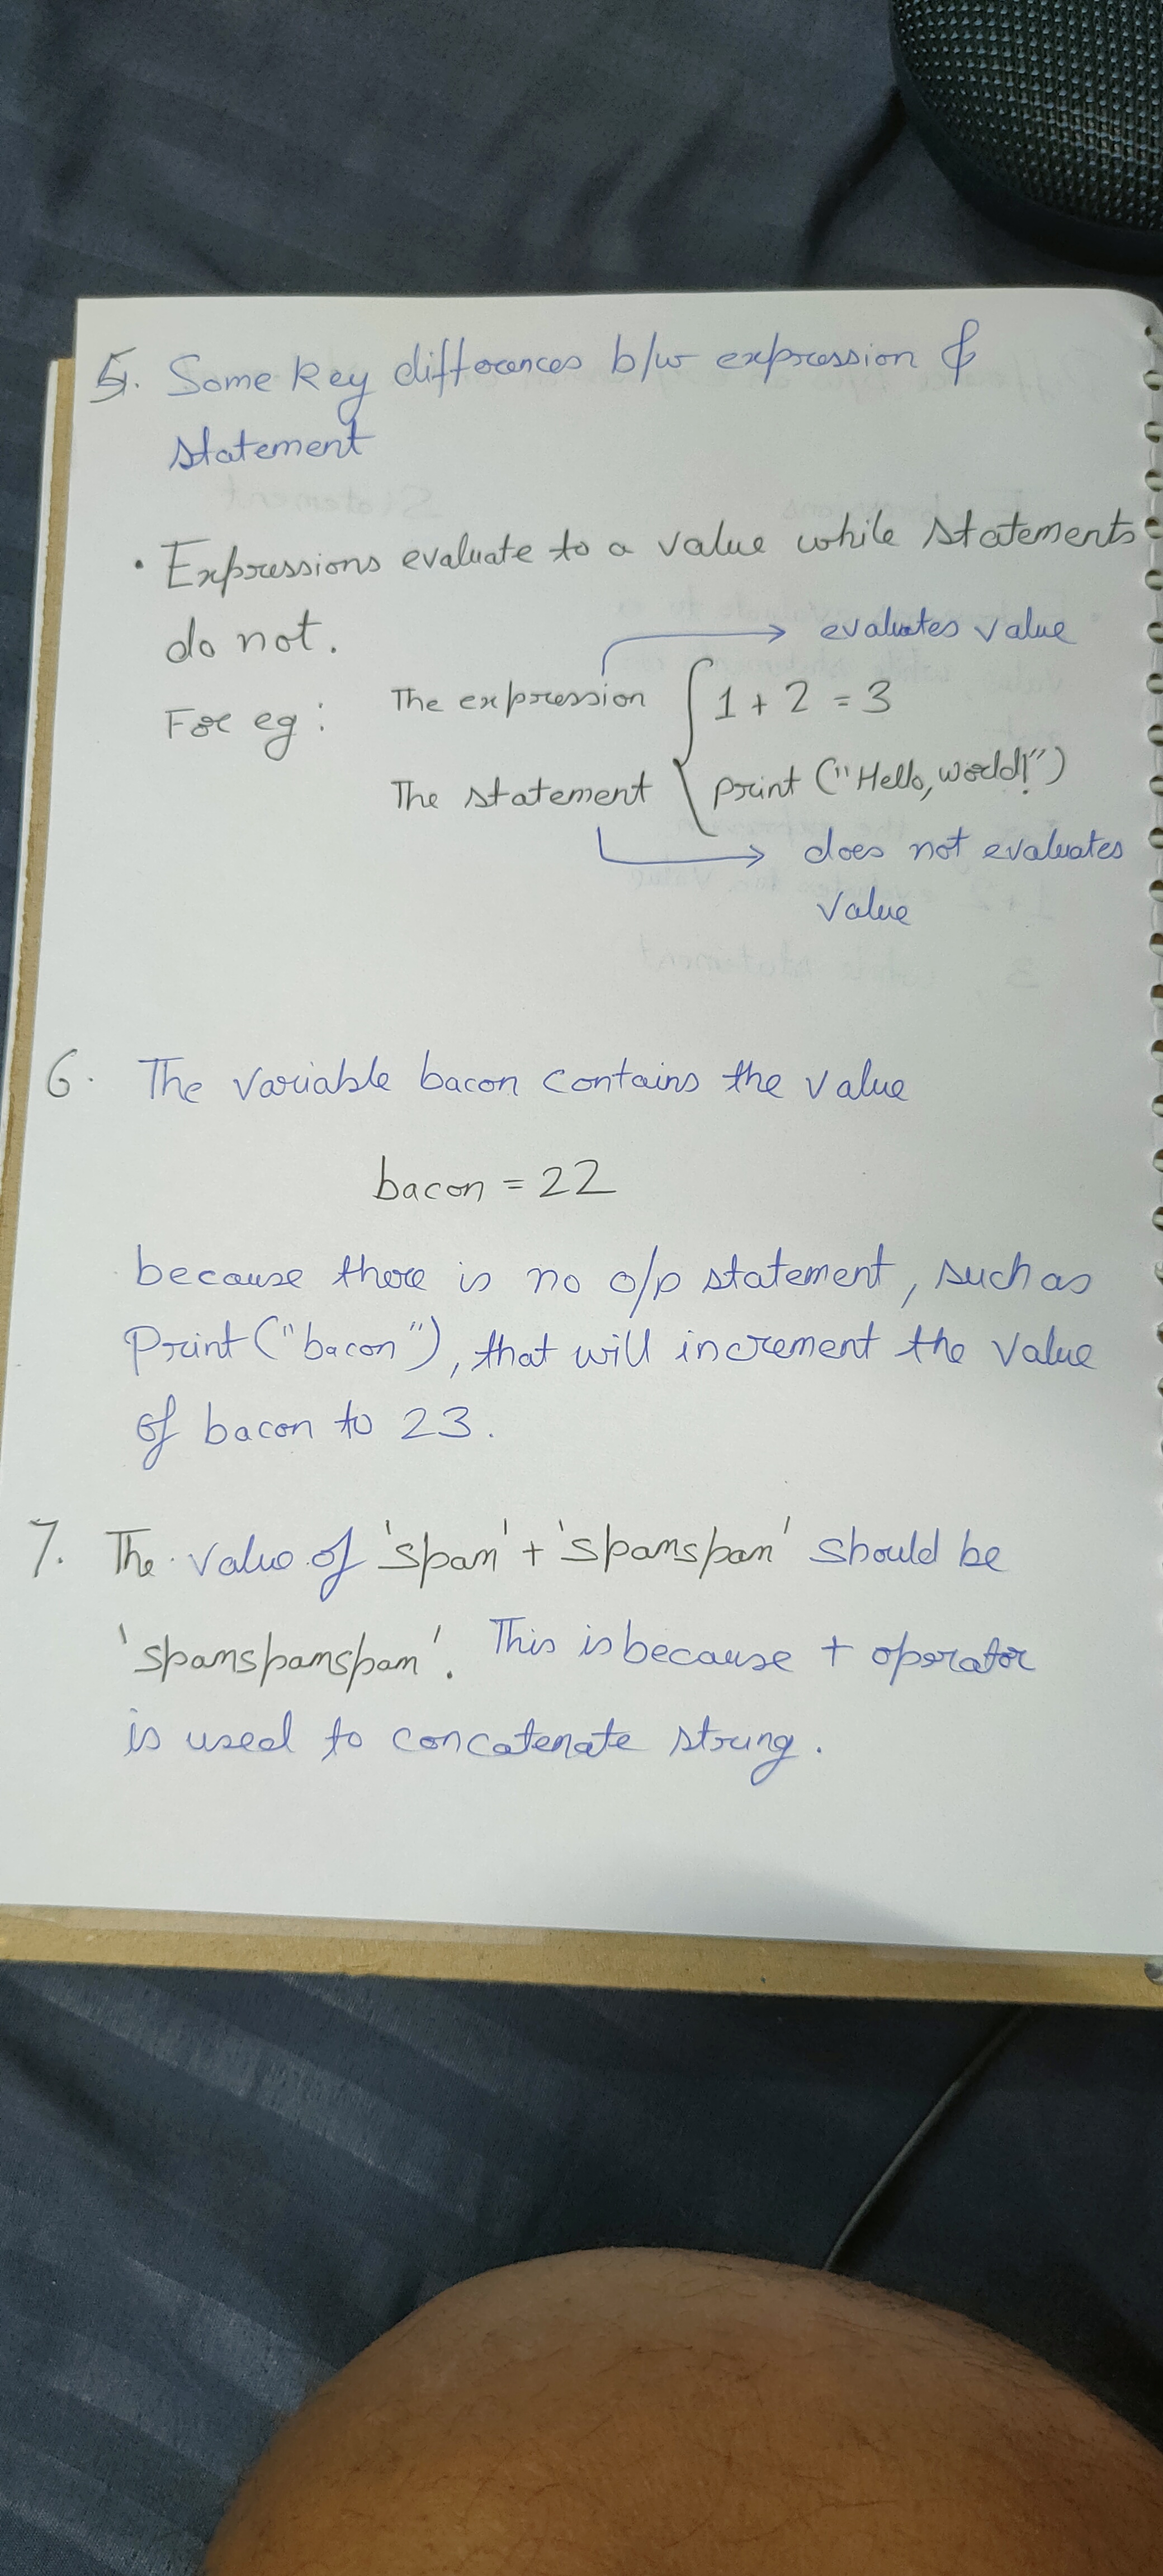 5. Some key differences b/w expression &
statement
• Expressions evaluate to a value while statements
do not.
evaluates value
For eg: The expression 1 + 2 = 3
The statement print ("Hello, world!")
does not evaluates
value
6. The variable bacon contains the value
bacon = 22
because there is no o/p statement, such as
Print ("bacon"), that will increment the value
of bacon to 23.
7. The value of 'spam' + 'spamspam' should be
'spamspamspam'. This is because + operator
is used to concatenate string.